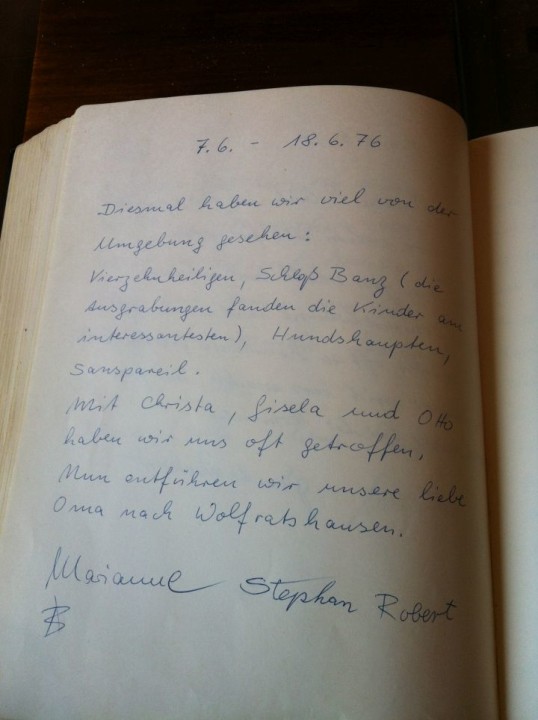 7.6. - 18.6.76
Diesmal haben wir viel von der
Umgebung gesehen:
Vierzehnheiligen, Schloß Banz (die
Ausgrabungen fanden die Kinder am
interessantesten), Hundshaupten,
Sanspareil.
Mit Christa, Gisela und Otto
haben wir uns oft getroffen.
Nun entführen wir unsere liebe
Oma nach Wolfratshausen.
Marianne Stephan Robert